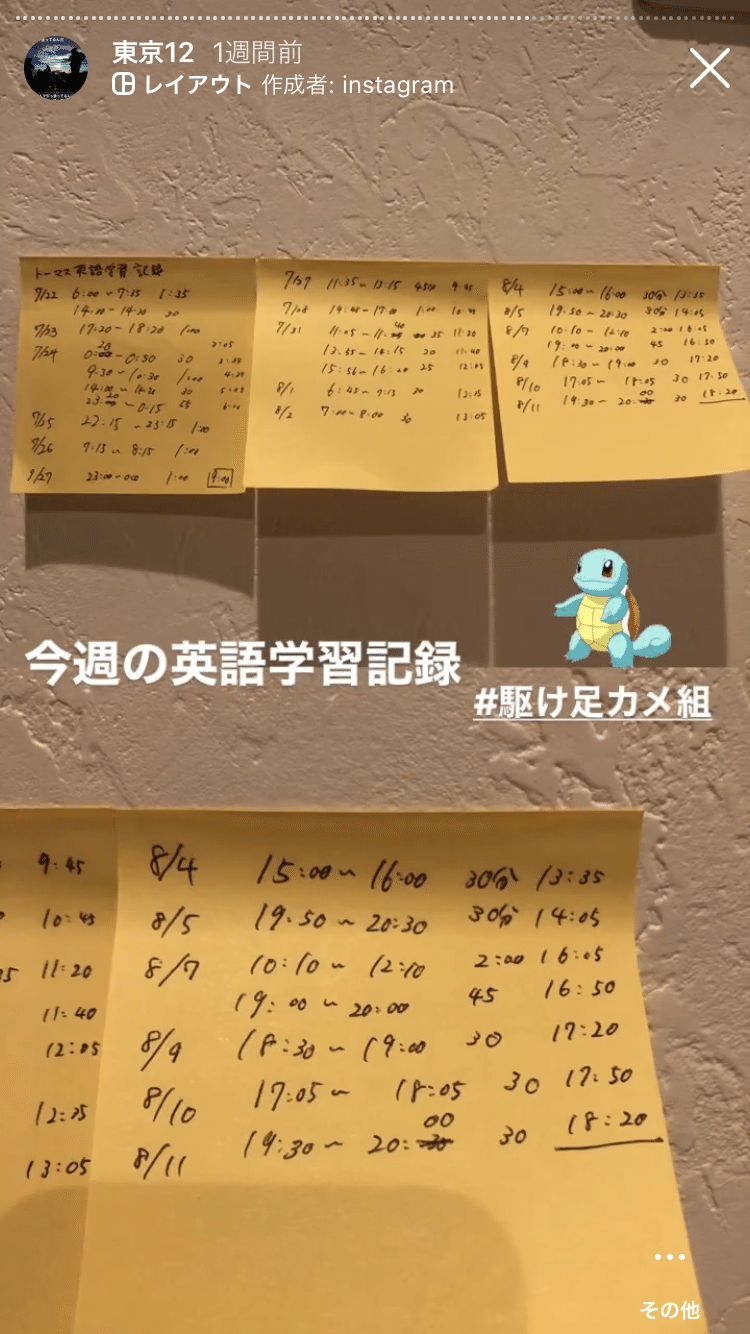 東京12 1週間前
レイアウト 作成者: instagram
トーマス英語学習記録
7/22 6:00~7:35 1:35
14:00~14:30 30
7/23 17:20~18:20 1:00
7/24 0:~0:50 30
9:30~10:30 1:00
14:00~14:30 30
23:20~0:15 55
7/25 22:15~23:15 1:00
7/26 7:15~8:15 1:00
7/27 23:00~0:00 1:00 9:00
7/27 11:35~13:15 45分 9:45
7/28 14:45~17:00 1:00 10:45
7/31 11:05~11:40 35 11:20
13:55~16:15 20 11:40
15:56~16:20 25 12:05
8/1 6:45~7:15 30
8/2 7:00~8:00 30 13:05
8/4 15:00~16:00 30分 13:35
8/5 19:50~20:30 30分 14:05
8/7 10:10~12:10 2:00 16:05
19:00~20:00 45 16:50
8/9 18:30~19:00 30 17:20
8/10 17:05~18:05 30 17:50
8/11 19:30~20:00 30 18:20
今週の英語学習記録
#駆け足カメ組
9:45 8/4 15:00~16:00 30分 13:35
10:45 8/5 19:50~20:30 30分 14:05
35 11:20 8/7 10:10~12:10 2:00 16:05
11:40 19:00~20:00 45 16:50
12:05 8/9 18:30~19:00 30 17:20
12:35 8/10 17:05~18:05 30 17:50
13:05 8/11 19:30~20:00 30 18:20
その他